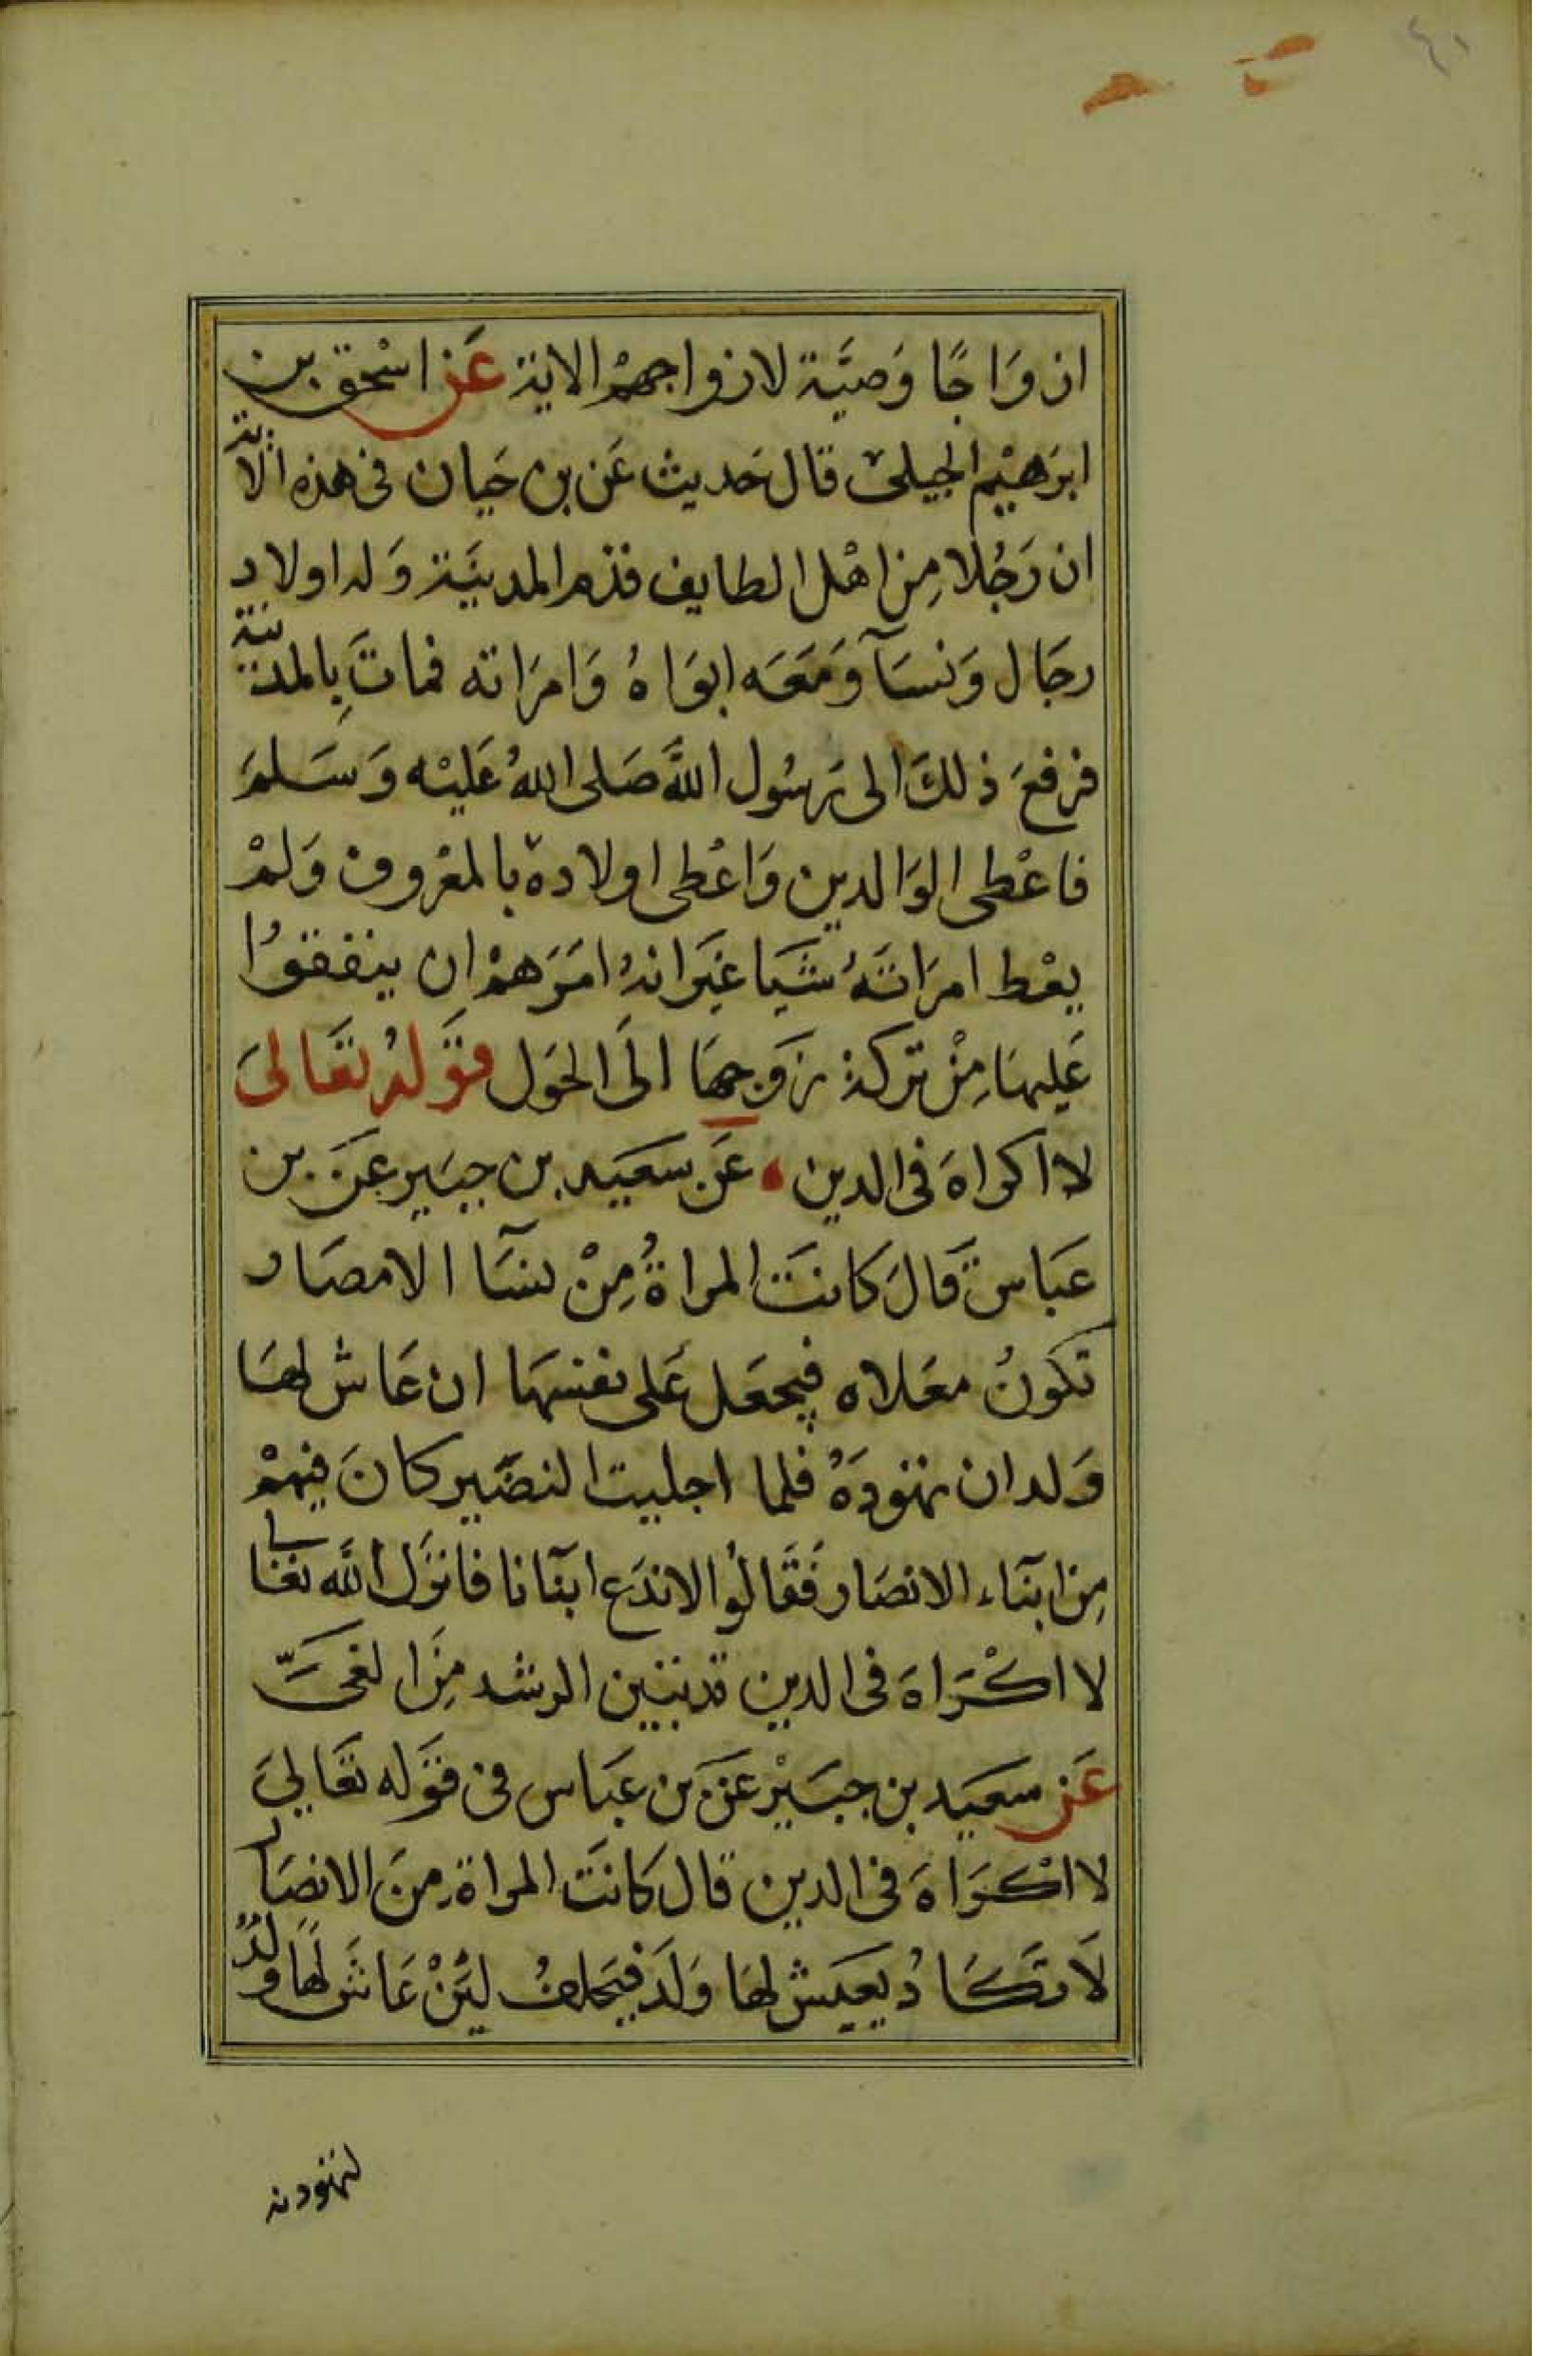 ٤١
ازوَاجًا وَصيَّة لازواجهمْ الاية عَن اسْحق بن
ابرَهيْم الجيلى قال حَديث عَن بن حَيان فى هذه الآية
ان رَجُلا مِن اهْل الطايف قدم المدينَة وَله اولاد
رجَال وَنسَآ وَمَعَه ابوَاهُ وَامرَاته فماتَ بِالمدينة
فرفعَ ذلكَ الى رَسُول اللَّه صَلى اللهُ عَليْه وَسَلمَ
فاعْطى الوَالدين وَاعْطى اولاده بالمعْروف وَلمْ
يعْط امرَاتَهُ شَيا غيَرانهُ امَرَهمْ ان ينفقوُا
عَليهَا مِنْ تركة زَوجهَا الَى الحَول قوَلهُ تعَالىَ
لا اكراهَ فى الدين عَن سعَيد بن جبَير عَن بن
عَباس قَالَ كانتَ المراةُ مِنْ نسَآ الامصَار
تكونُ معَلاه فيجعَل عَلى نفسهَا ان عَاش لهَا
وَلد ان تهودَهُ فلما اجليت النضَير كانَ فيهمْ
مِن ابنَآء الانصَار فَقَالوُا لاندَع ابنآنا فانزَل اللَّه تعَالى
لا اكْرَاهَ فى الدين قد تبين الرشد مِنَ الغىَّ
عَن سعَيد بن جبَيْر عَن بن عبَاس فى قوَله تعَالىَ
لا اكْرَاهَ فى الدين قال كانتَ المراة مِنَ الانصَار
لَا تكَادُ يعيَش لهَا وَلَد فيَحلفُ لئِنْ عَاشَ لهَا وَلدُ
لتهودنه